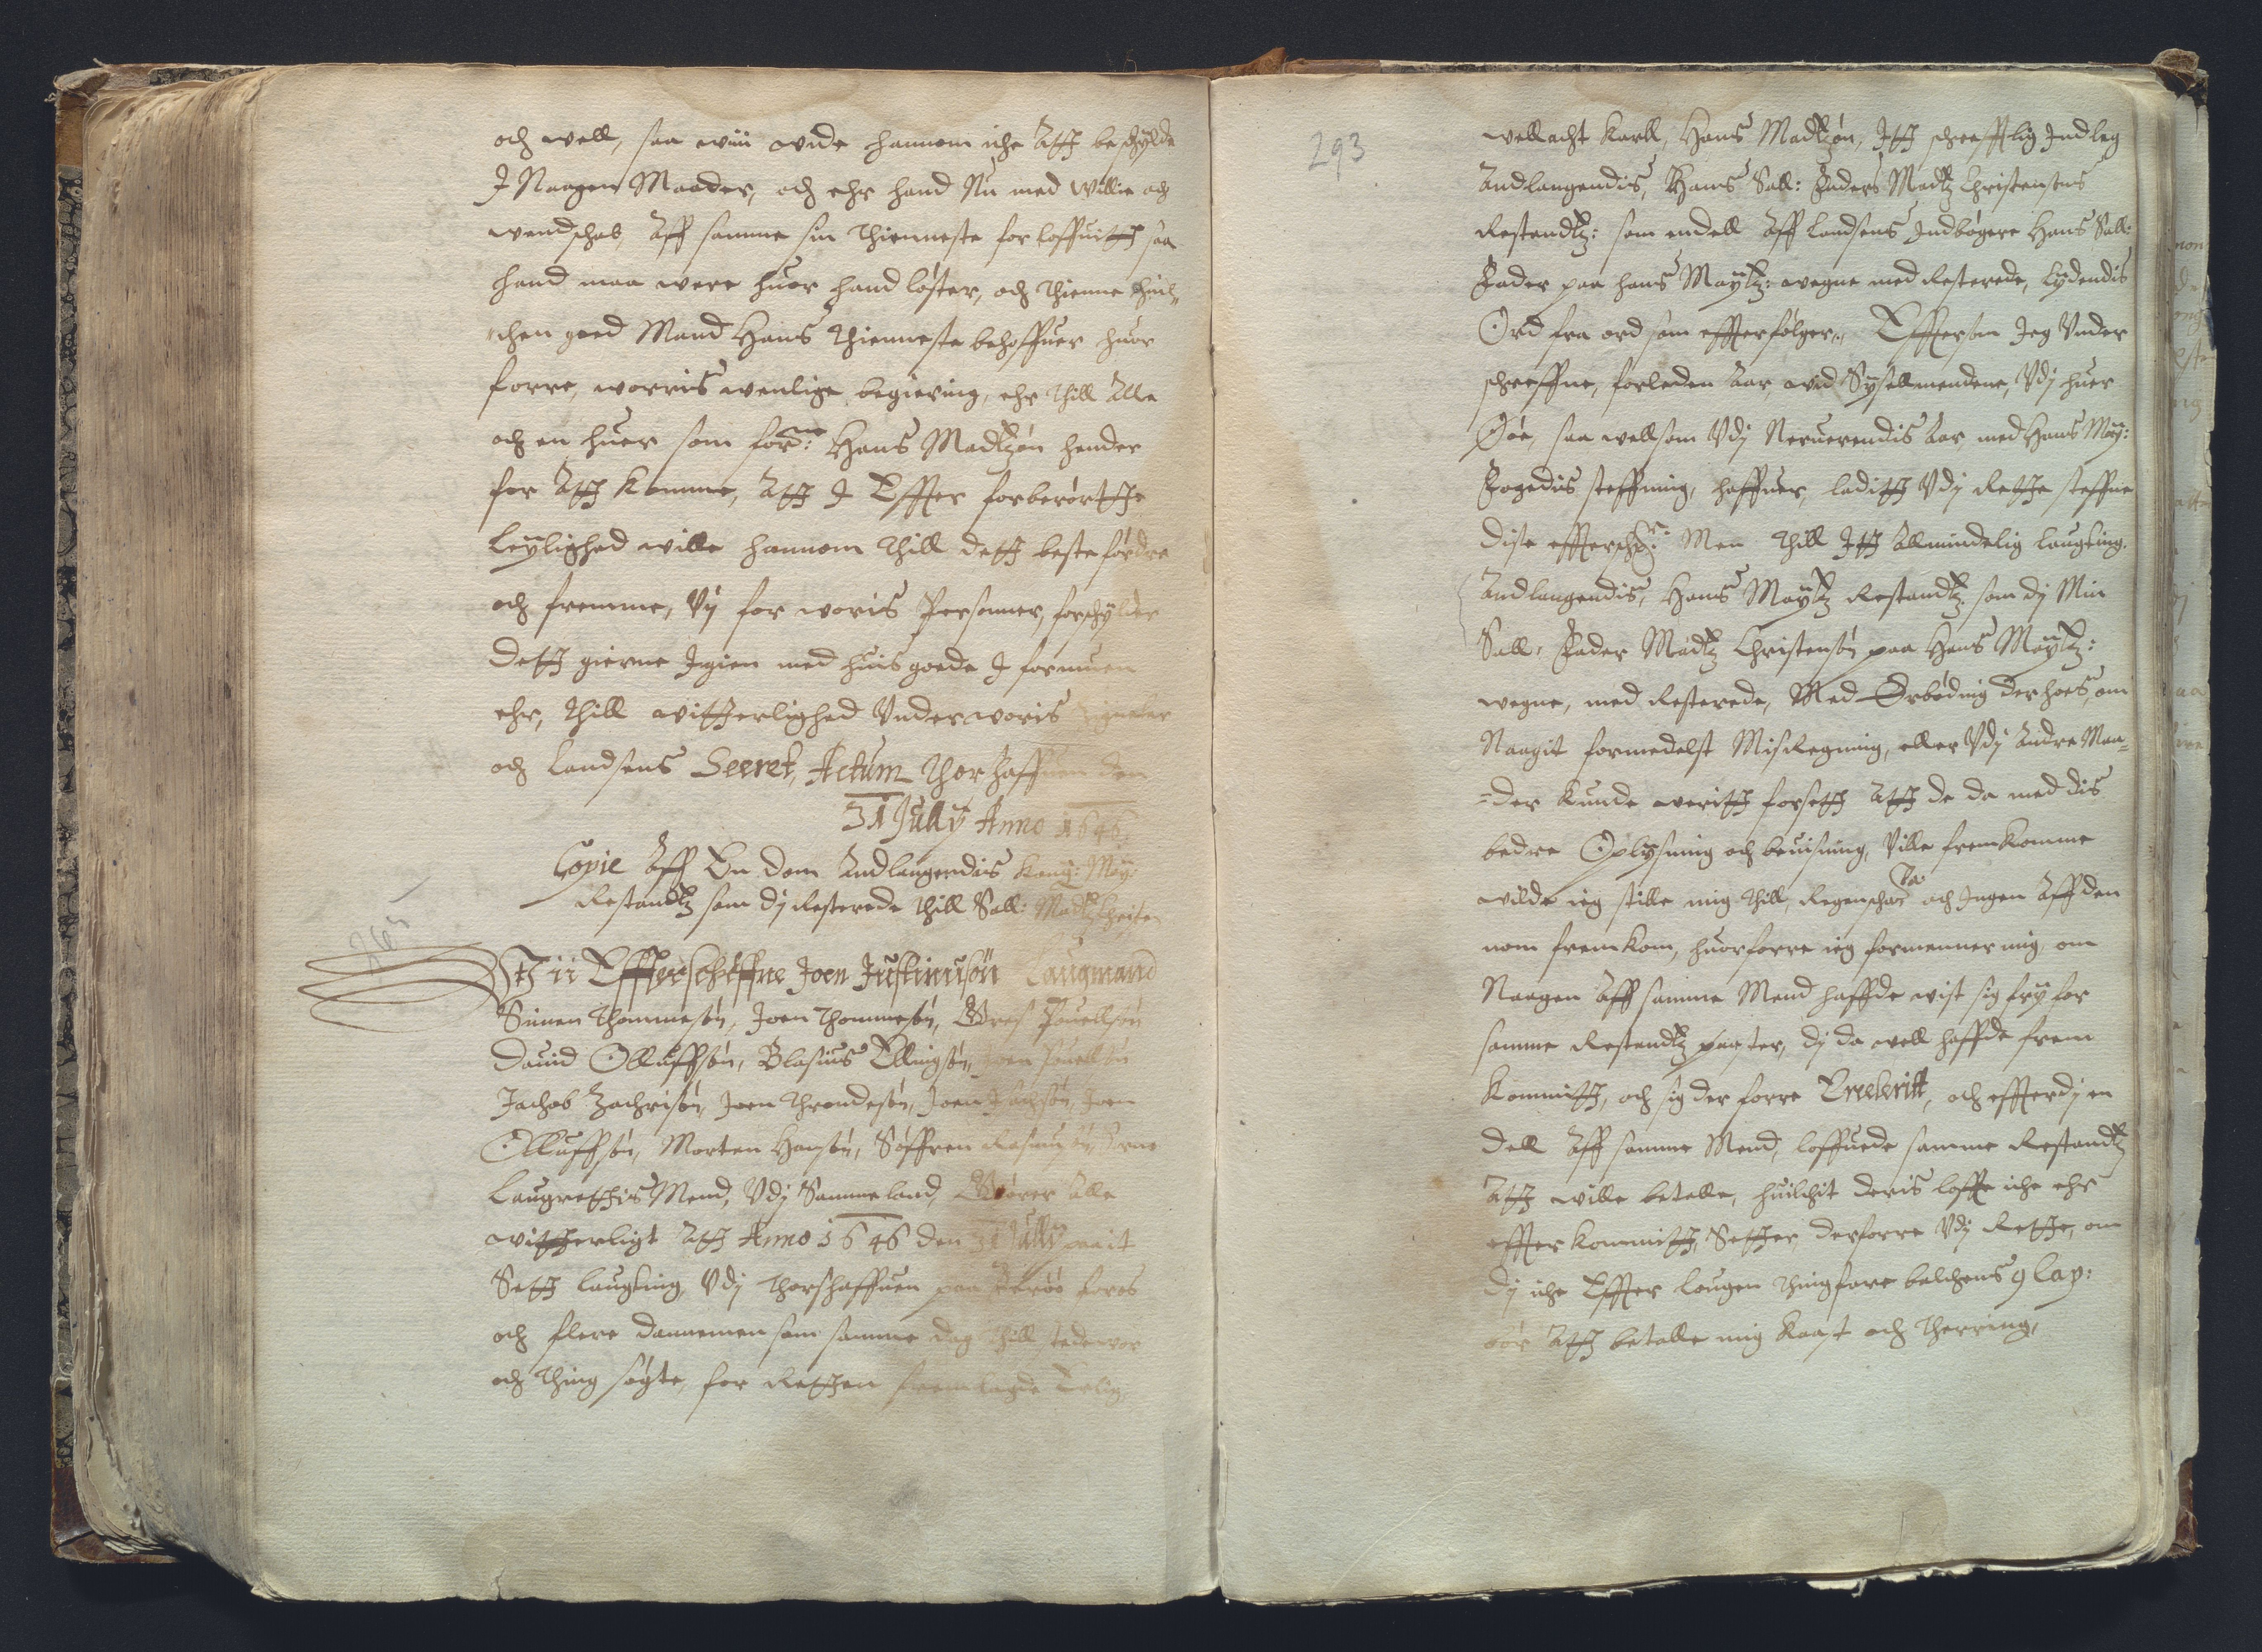 och well, saa wiii wide hannom iche Atth beschylde
I Naagen Maader, och ehr hand Nu med Willie och
wendschab, Aff samme sin Thienneste forloffuitth saa
hand maa were huor hand løster, och Thienne huil„
„chen goed Mand Hans Thienneste behoffuer huor
forre, worris wenlige begiering, ehr Thill Alle
och en huer som forne: Hans Madtzøn hender
for Atth Komme, Atth I Effter forberørtthe
Leylighed wille hannom Thill detth beste fördre
och fremme, Vij for woris Personner, forschylder
detth gierne Igien med huis goede I formuen
ehr, Thill wittherlighed Vnder woris Zigneter
och Landsens Secret, Actum Thorshaffuen den
31 July Anno 1646.
Copie Aff En dom Andlangendis Kong: May:
Restandtz som dj Resterede Thill Sall: Madtz Christen
Wii Effterschreffne Joen Justinusøn Laugmand
Simen Thommesøn, Joen Thommesøn, Gres Pouellsøn
Dauid Olluffsøn, Blasius Ellingsøn, Joen Pouellsøn
Jachob Zachrisøn, Joen Throndesøn, Joen Isachsøn, Joen
Olluffsøn, Morten Hansøn, Søffren Rasmusøn Sorne
Laugretthis Mend, Vdj Samme land, Giører Alle
witterligt Atth Anno 1646 den 31 July wait
Setth laugting, Vdj Thorshaffuen paa Strøø foros
och flere dannemen som samme dag Thill stede wor
och Thing søgte, for Retthen fremlagde Erlig
293
wellacht Karll, Hans Madtzøn, Itth schrefftlig Indleg
Andlangendis, Hans Sall: Faders Madtz Christensens
Restandtz: som endell Aff Landsens Indbøgere Hans Sall:
Fader paa hans Maytz: wegne med Resterede, Lydendis
Ord fra ord som effterfølger„ Efftersom Jeg Vnder
schreffne, forleden Aar, wed Sysellmendene, Vdj huer
Øøe, saa wellsom Vdj Neruerendis Aar, med Hans May:
Fogedis steffning, haffuer, laditth Vdj Retthe steffne
disse efftersch: Men Thill Itth Allmindelig laugting.
Andlangendis, Hans Maytz Restandtz. som dj Min
Sall: Fader Madtz Christensøn paa Hans Maytz:
wegne, med Resterede, Med Orbøding der hoes, om
Naagit formedelst MisRegning, eller Vdj Andre Maa=
=der Kunde weritth forsetth Atth de da med dis
bedre Oplysning och beuisning, Ville fremkomme
wilde ieg stille mig Thill, Regenschab och Ingen Aff den
nom fremkom, huorforre ieg formenner mig, om
Naagen Aff samme Mend haffde wist sig fry for
samme Restandtz paster, dj da well haffde frem
Kommitth, och sig der forre Ercleritt, och effterdj en
dell Aff samme Mend, loffuede samme Restandtz
Atth wille betalle, huilchit deris loffte iche ehr
effterkommitth, Setther, derforre Vdj Retthe, om
dj iche Effter Lougen Thingfare belchens 9 Cap:
bør Atth betalle mig Kaast och Therring,